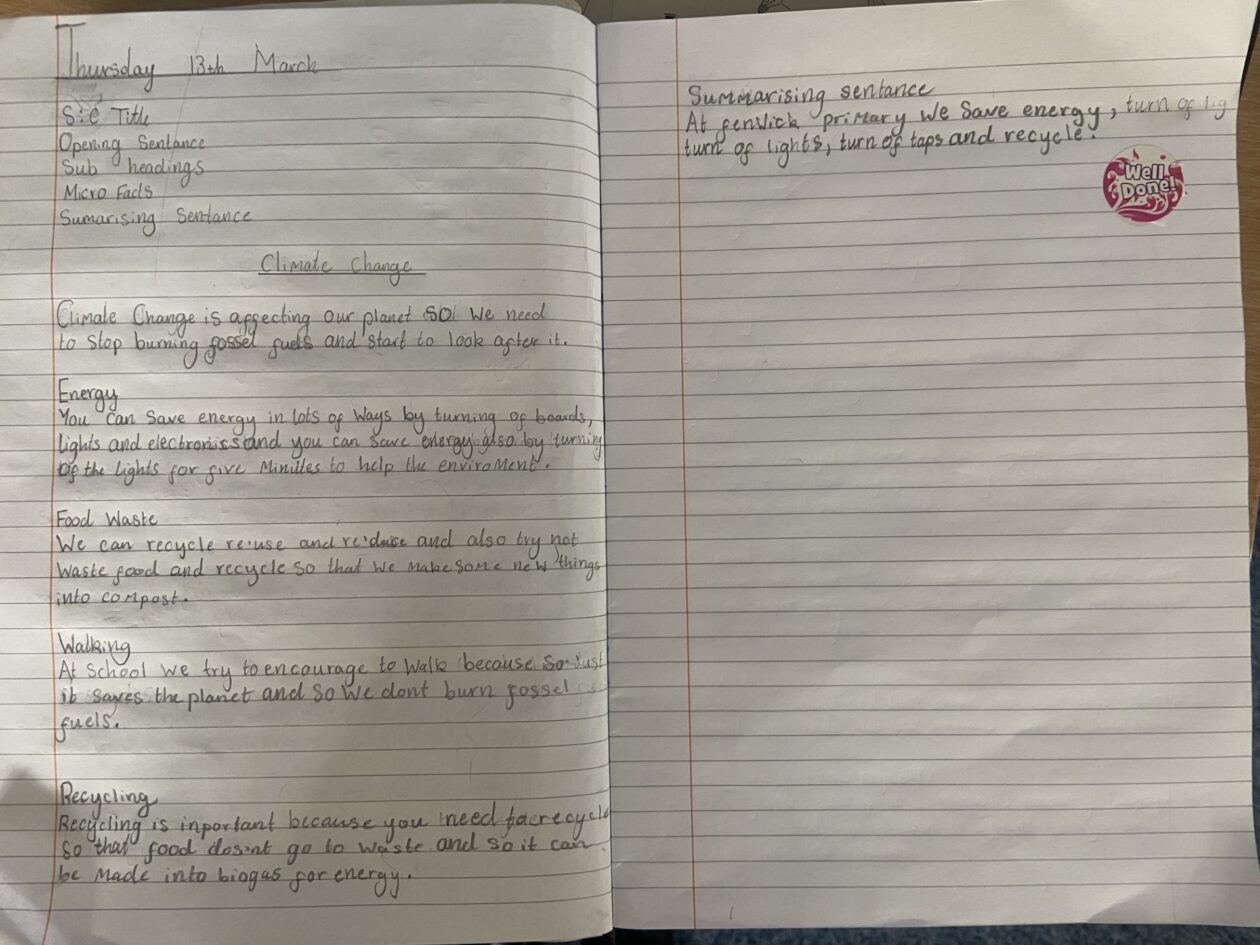 Thursday 13th March
S:C Title
Opening Sentence
Sub headings
Micro Facts
Sumarising Sentance
Climate Change
Climate Change is affecting our planet SO! We need
to stop burning fossel fuels and start to look after it.
Energy
You can save energy in lots of ways by turning of boards,
lights and electronics and you can save energy also by turning
of the lights for five Minittes to help the enviroment.
Food Waste
We can recycle re'use and re'duse and also try not
waste food and recycle so that we make some new things
into compost.
Walking
At School we try to encourage to walk because so just
it saves the planet and so we dont burn fossel
fuels.
Recycling
Recycling is inportant because you need to recycle
so that food dosent go to waste and so it can
be Made into biogas for energy.
Summarising sentance
At fenwick primary we save energy, turn of lig
turn of lights, turn of taps and recycle.
Well
Done!